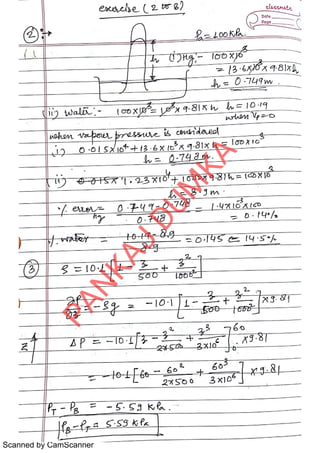 exercise (2 to 6)
classmate
Date
Page
② :→
P = 100 kPa.
(i) Hg:- 100×10³
= 13.6×10³×9.81×h
h
h = 0.749m.
(ii) water:- 100×10³ = 10³×9.81×h h = 10.19
when Vp=0
when vapour pressure is considered
i) 0.015×10⁴ + 13.6×10³×9.81×h = 100×10³
h = 0.748m.
(ii) 1.23×10⁴ + 1000×9.81h = 100×10³
h = 8.9m.
% error Hg = 0.749-0.748 / 0.748 = 1.4×10⁻³×100
= 0.14%
% water = 10.19-8.9 / 8.9 = 0.145 = 14.5%
③ S = 10.1 [1 - z/500 + z²/1000²]
∂P/∂z = -Sg = -10.1 [1 - z/500 + z²/1000²] ×9.81
z
ΔP = -10.1 [z - z²/2×500 + z³/3×10⁶]₀⁶⁰ ×9.81
= -10.1 [60 - 60²/2×500 + 60³/3×10⁶] ×9.81
PT - PB = -5.59 KPa.
PB - PT = 5.59 KPa
PANKAJ DUMKA
Scanned by CamScanner